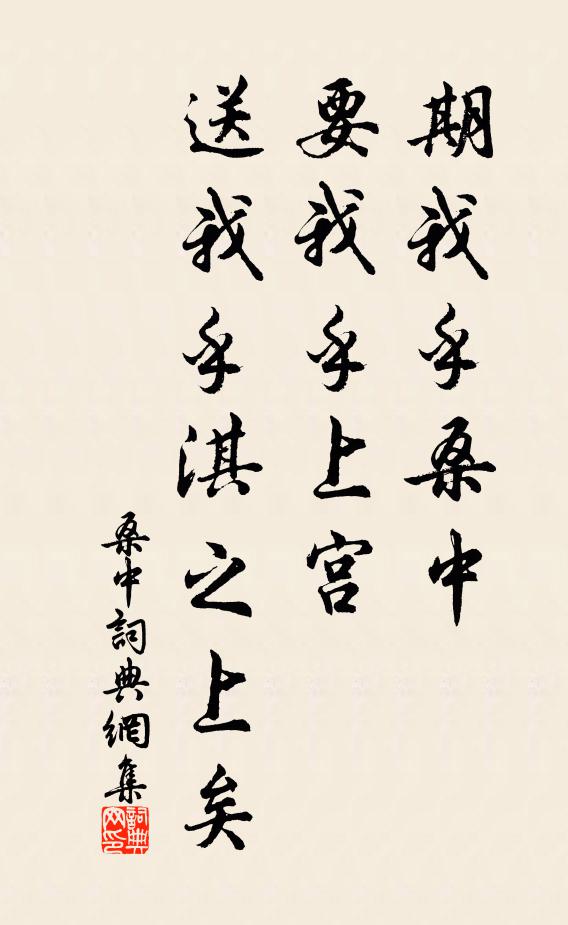 期我乎桑中
要我乎上宫
送我乎淇之上矣
桑中詞典網集
詞典网印